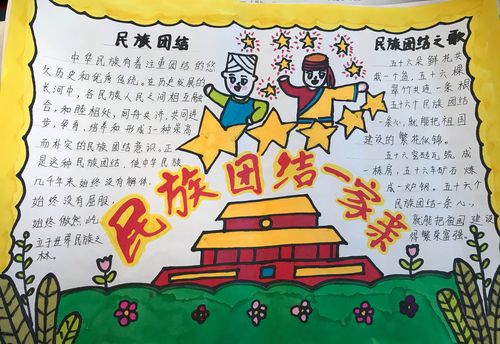 民族团结
中华民族有着注重团结的悠
久历史和优秀传统。在历史发展的
长河中，各民族人民之间相互融
合，和睦相处，同舟共济，共同进
步，孕育，培养和形成了一种崇高
而朴实的民族团结意识。正
是这种民族团结，使中华民族
几千年来始终没有解体，
始终没有屈服，
始终傲然屹
立于世界民族之
林。
民族团结一家亲
民族团结之歌
五十六朵鲜花共
栽一个盆，五十六棵
草竹共连一条根
五十六个民族团结
一条心，就能把祖国
建设的繁花似锦。
五十六窑砖瓦筑成
一栋房，五十六车矿石炼
成一炉钢。五十六个
民族团结一条心，
就能把祖国建设
得繁荣富强。